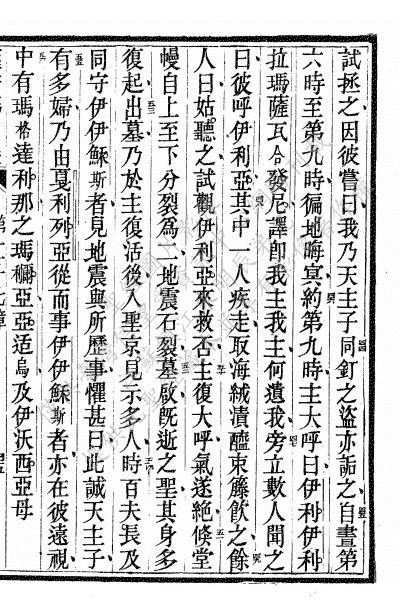 試拯之因彼嘗曰我乃天主子同釘之盜亦詬之自晝第
六時至第九時徧地晦冥約第九時主大呼曰伊利伊利
拉瑪薩瓦合發尼譯卽我主我主何遺我旁立數人聞之
曰彼呼伊利亞其中一人疾走取海絨漬醯束籐飲之餘
人曰姑聽之試觀伊利亞來救否主復大呼氣遂絶倏堂
幔自上至下分裂爲二地震石裂墓啟旣逝之聖其身多
復起出墓乃於主復活後入聖京見示多人時百夫長及
同守伊伊穌斯者見地震與所歷事懼甚曰此誠天主子
有多婦乃由戛利列亞從而事伊伊穌斯者亦在彼遠視
中有瑪格達利那之瑪䅦亞亞适烏及伊沃西亞母